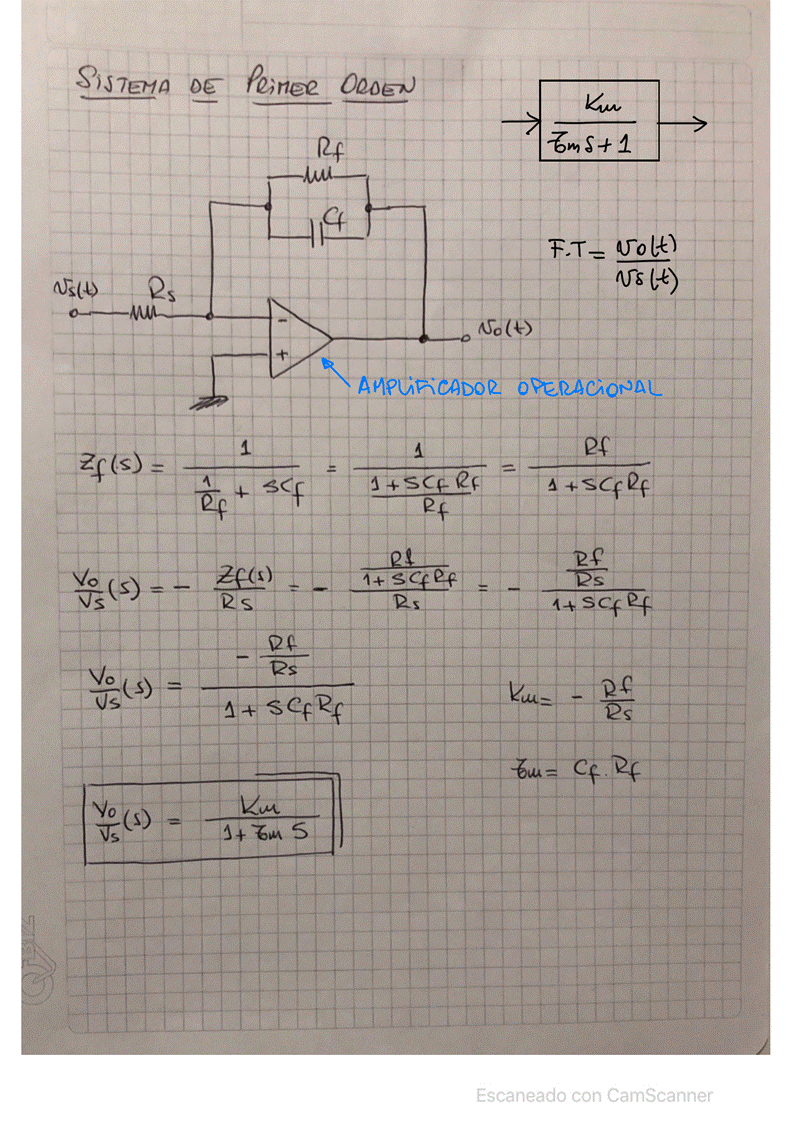 SISTEMA DE PRIMER ORDEN
Km / (τm S + 1)
Rf
Cf
F.T = vo(t) / vs(t)
vs(t)
Rs
-
+
vo(t)
AMPLIFICADOR OPERACIONAL
Zf(s) = 1 / (1/Rf + SCf) = 1 / ((1 + SCf Rf) / Rf) = Rf / (1 + SCf Rf)
Vo/Vs (s) = - Zf(s) / Rs = - (Rf / (1 + SCf Rf)) / Rs = - (Rf / Rs) / (1 + SCf Rf)
Vo/Vs (s) = (- Rf / Rs) / (1 + SCf Rf)
Km = - Rf / Rs
τm = Cf . Rf
Vo/Vs (s) = Km / (1 + τm S)
Escaneado con CamScanner